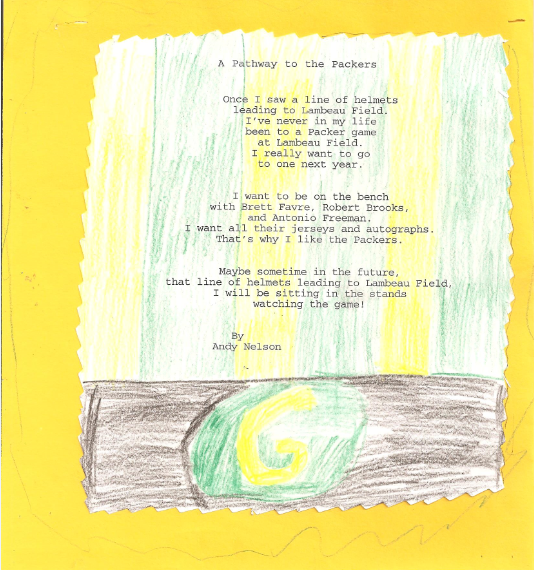 A Pathway to the Packers
Once I saw a line of helmets
leading to Lambeau Field.
I've never in my life
been to a Packer game
at Lambeau Field.
I really want to go
to one next year.
I want to be on the bench
with Brett Favre, Robert Brooks,
and Antonio Freeman.
I want all their jerseys and autographs.
That's why I like the Packers.
Maybe sometime in the future,
that line of helmets leading to Lambeau Field,
I will be sitting in the stands
watching the game!
By
Andy Nelson
G